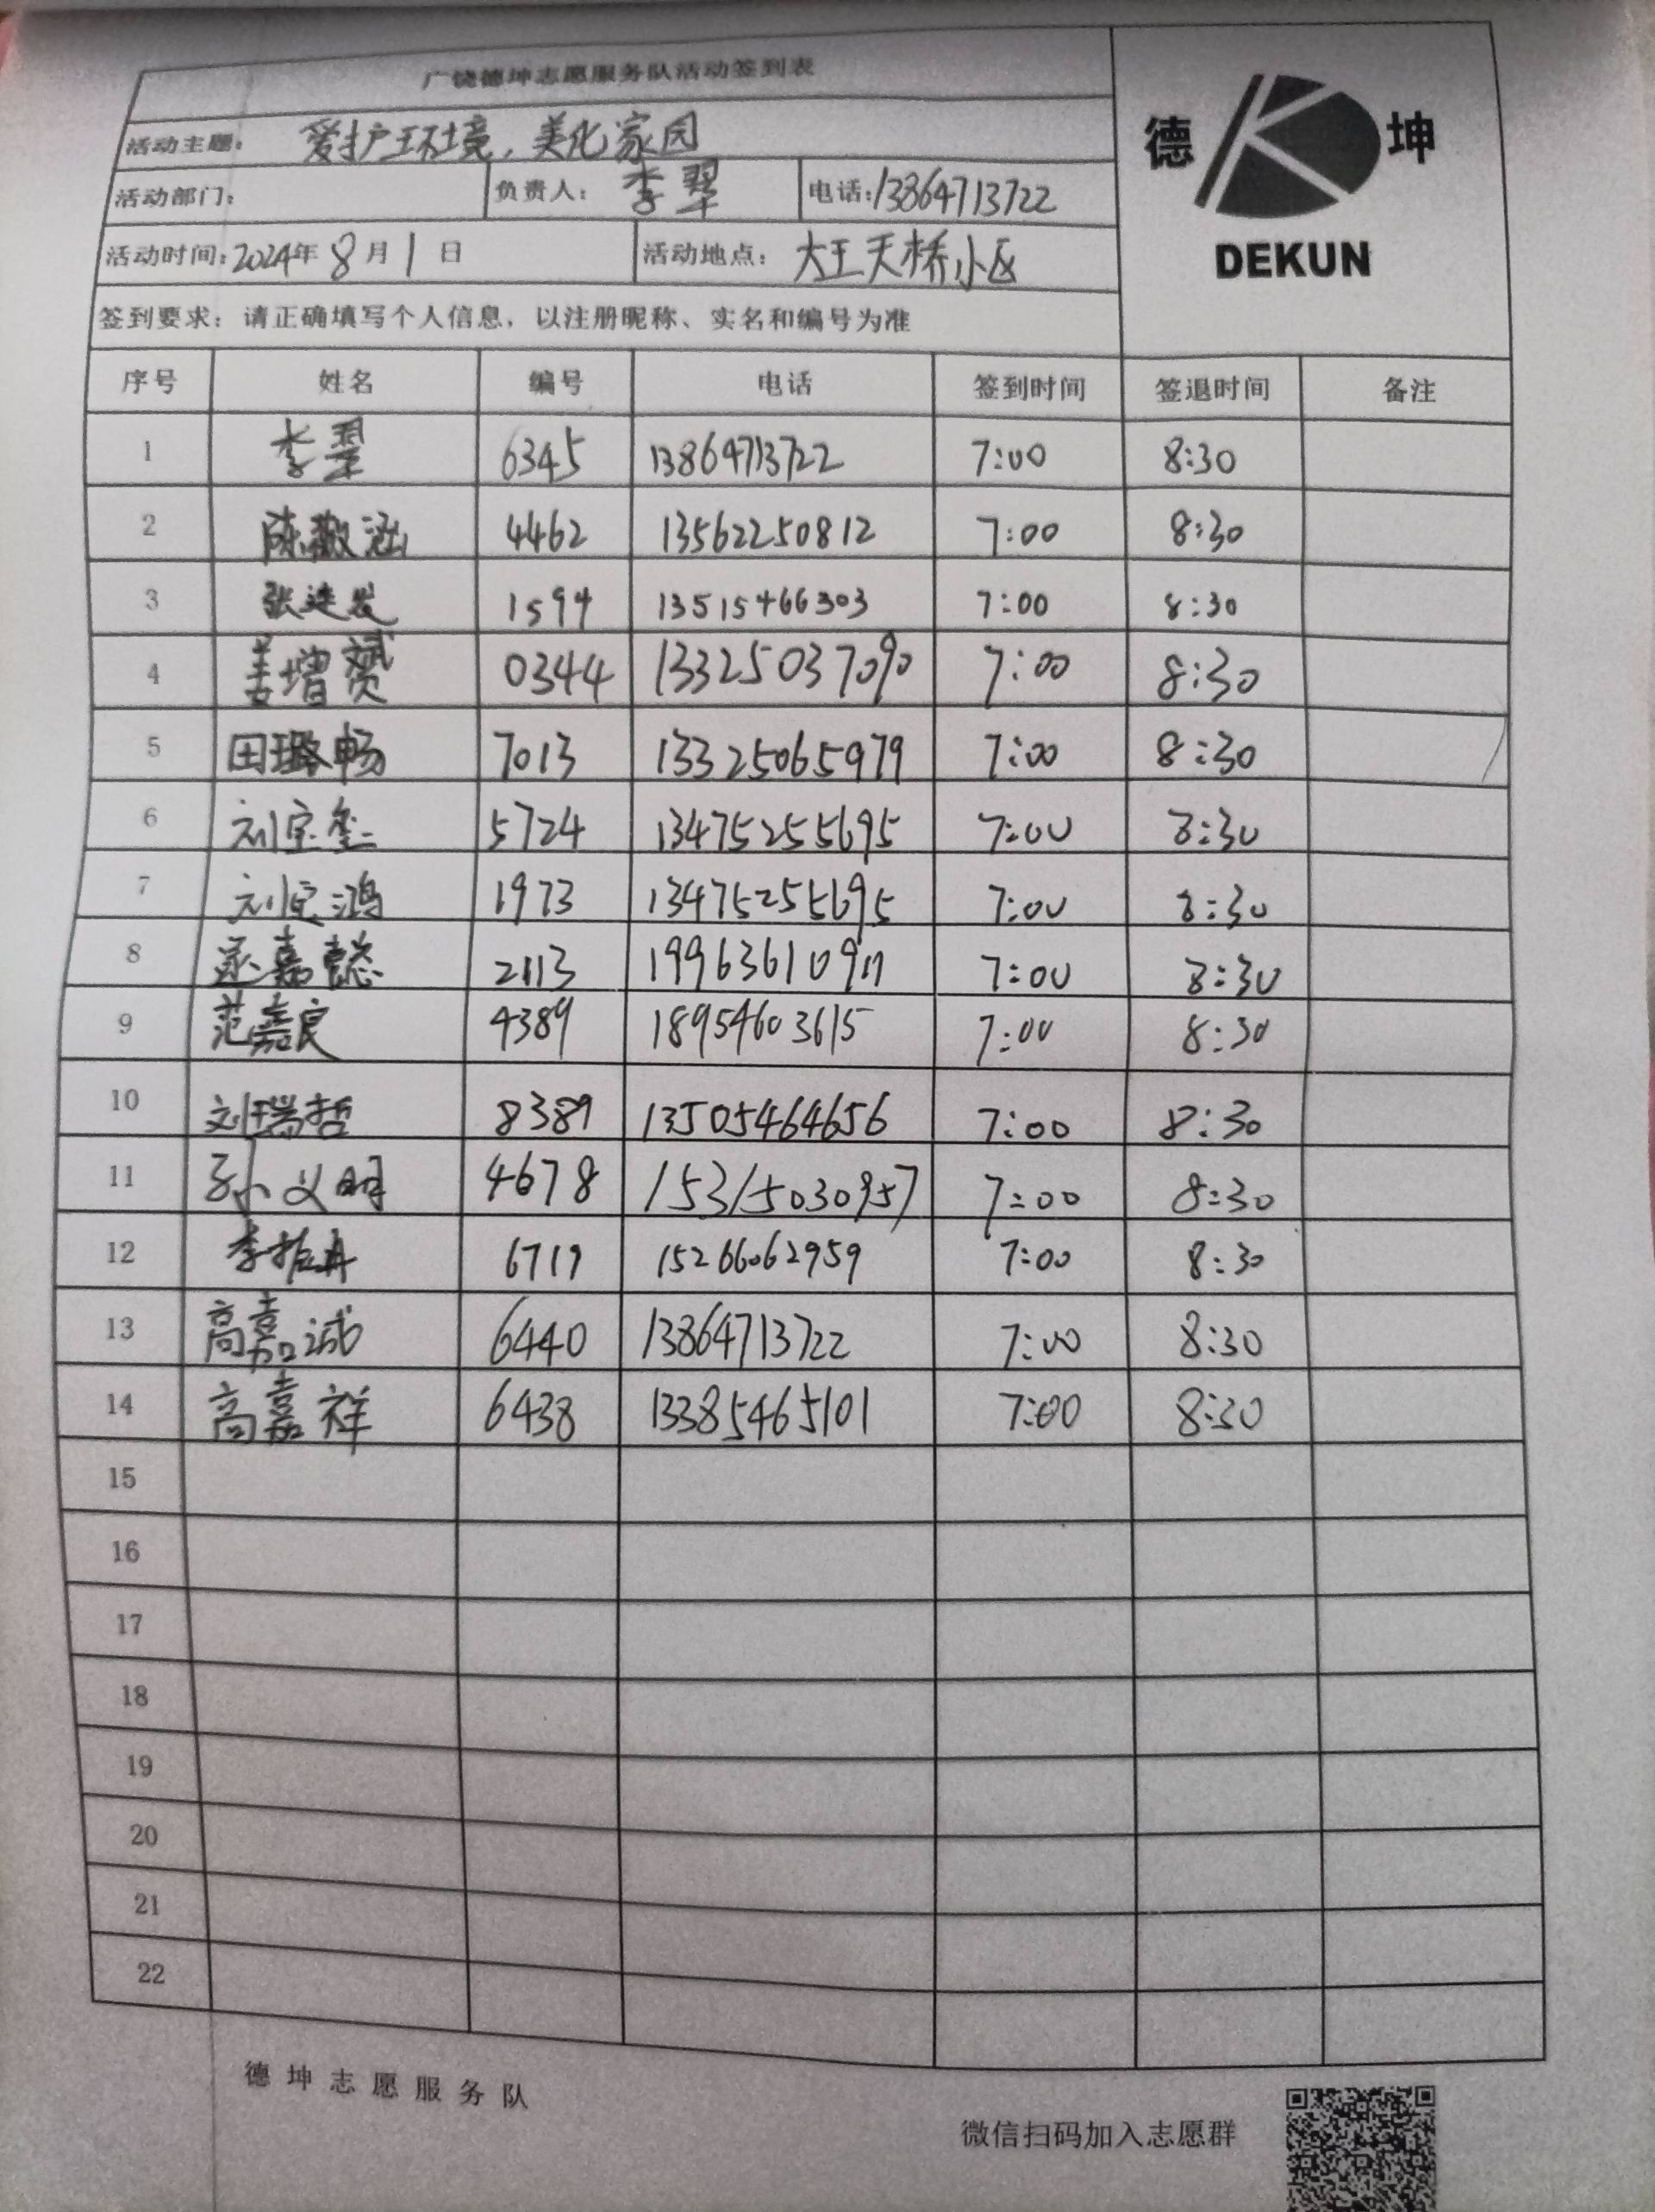 广饶德坤志愿服务队活动签到表
德 坤
DEKUN
活动主题: 爱护环境,美化家园
活动部门: 负责人: 李翠 电话:13864713722
活动时间:2024年8月1日 活动地点: 大王天桥小区
签到要求: 请正确填写个人信息, 以注册昵称、实名和编号为准
序号 姓名 编号 电话 签到时间 签退时间 备注
1 李翠 6345 13864713722 7:00 8:30
2 陈敬涵 4462 13562250812 7:00 8:30
3 张连发 1594 13515466303 7:00 8:30
4 姜增赟 0344 13325037090 7:00 8:30
5 田璐畅 7013 13325065979 7:00 8:30
6 刘宝玺 5724 13475255695 7:00 8:30
7 刘宝鸿 1973 13475255695 7:00 8:30
8 嘉懿 2113 7:00 8:30
9 范嘉良 4389 18954603615 7:00 8:30
10 刘瑞哲 8389 13505464656 7:00 8:30
11 孙义明 4678 15315030957 7:00 8:30
12 李 6719 15266062959 7:00 8:30
13 高嘉诚 6440 13864713722 7:00 8:30
14 高嘉祥 6438 13385465101 7:00 8:30
15
16
17
18
19
20
21
22
德坤志愿服务队
微信扫码加入志愿群